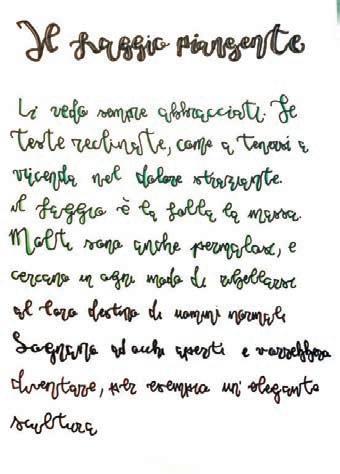 Il faggio piangente
Li vedo sempre abbracciati. Le
teste reclinate, come a tenersi a
vicenda nel dolore straziante.
Il faggio è la folla la massa.
Molti sono anche permalosi, e
cercano in ogni modo di ribellarsi
al loro destino di uomini normali
Sognano ad occhi aperti e vorrebbero
diventare, per esempio un' elegante
scultura